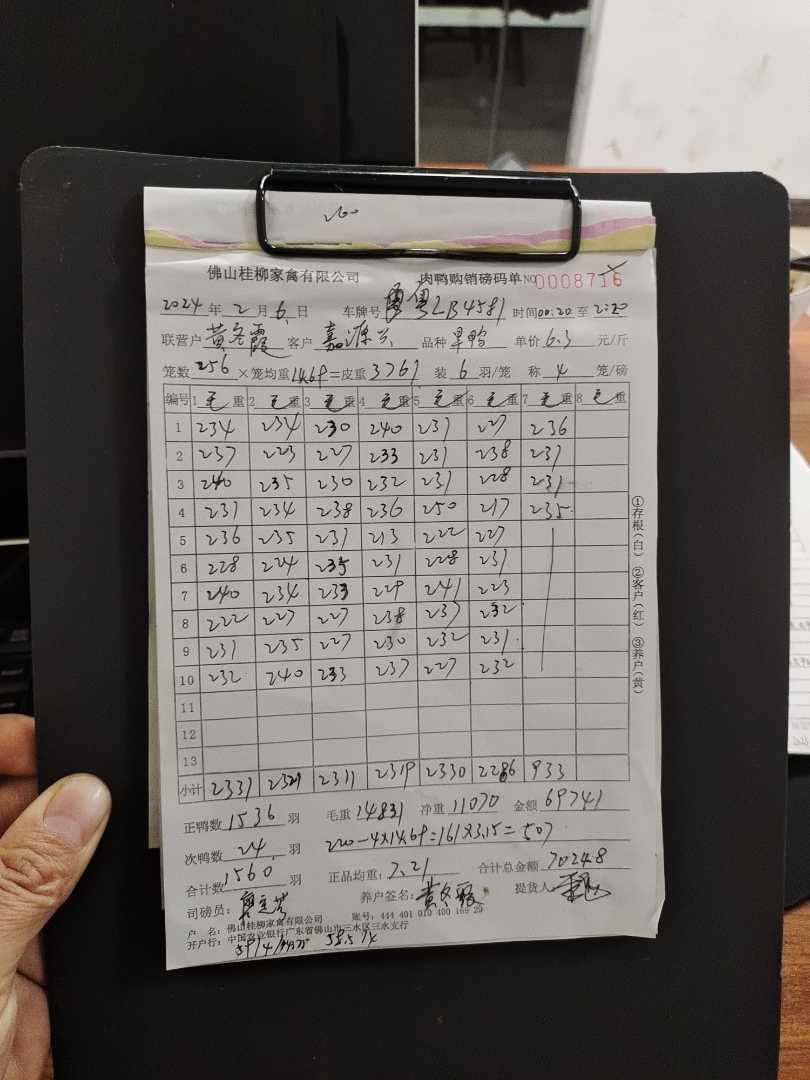 260
佛山桂柳家禽有限公司 肉鸭购销磅码单 NO 0008716
2024 年 2 月 6 日 车牌号 粤LB4581 时间 00:20 至 2:20
联营户 黄冬霞 客户 嘉源兴 品种 旱鸭 单价 6.3 元/斤
笼数 256 ×笼均重 14.69 =皮重 3761 装 6 羽/笼 称 4 笼/磅
编号 1 毛 重 2 毛 重 3 毛 重 4 毛 重 5 毛 重 6 毛 重 7 毛 重 8 毛 重
1 234 234 230 240 231 227 236
2 237 223 227 233 231 238 231
3 240 235 230 232 231 228 231
4 231 234 238 236 250 217 235
5 236 235 231 213 222 227
6 228 224 235 231 228 231
7 240 234 233 229 241 223
8 222 227 227 238 237 232
9 231 235 227 230 232 231
10 232 240 233 237 227 232
11
12
13
小计 2331 2321 2311 2319 2330 2286 933
①存根(白) ②客户(红) ③养户(黄)
正鸭数 1536 羽 毛重 14831 净重 11070 金额 69741
次鸭数 24 羽 220-4×14.69=161×3.15=507
合计数 1560 羽 正品均重: 7.21 合计总金额 70248
司磅员: 养户签名: 黄冬霞 提货人
户 名: 佛山桂柳家禽有限公司 账号: 444 401 010 400 169 29
开户行: 中国农业银行广东省佛山市三水区三水支行